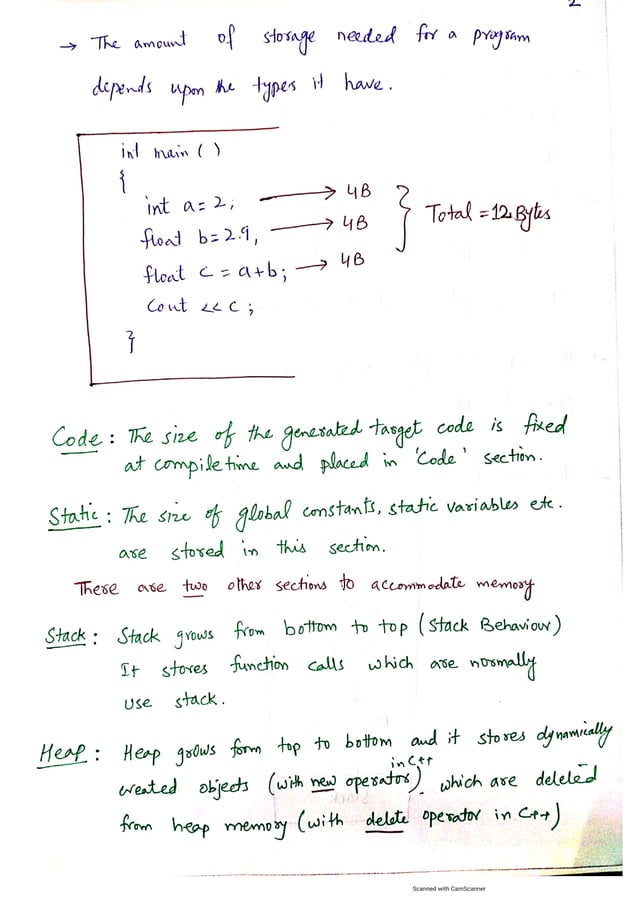 2
→ The amount of storage needed for a program
depends upon the types it have.
int main ( )
{
int a = 2; → 4B
float b = 2.9, → 4B } Total = 12 Bytes
float c = a+b; → 4B
Cout << c ;
}
Code : The size of the generated target code is fixed
at compile time and placed in 'Code' section.
Static : The size of global constants, static variables etc.
are stored in this section.
There are two other sections to accommodate memory
Stack : Stack grows from bottom to top (Stack Behaviour)
It stores function calls which are normally
use stack.
Heap : Heap grows form top to bottom and it stores dynamically
created objects (with new operator) in C++ which are deleted
from heap memory (with delete operator in C++)
Scanned with CamScanner